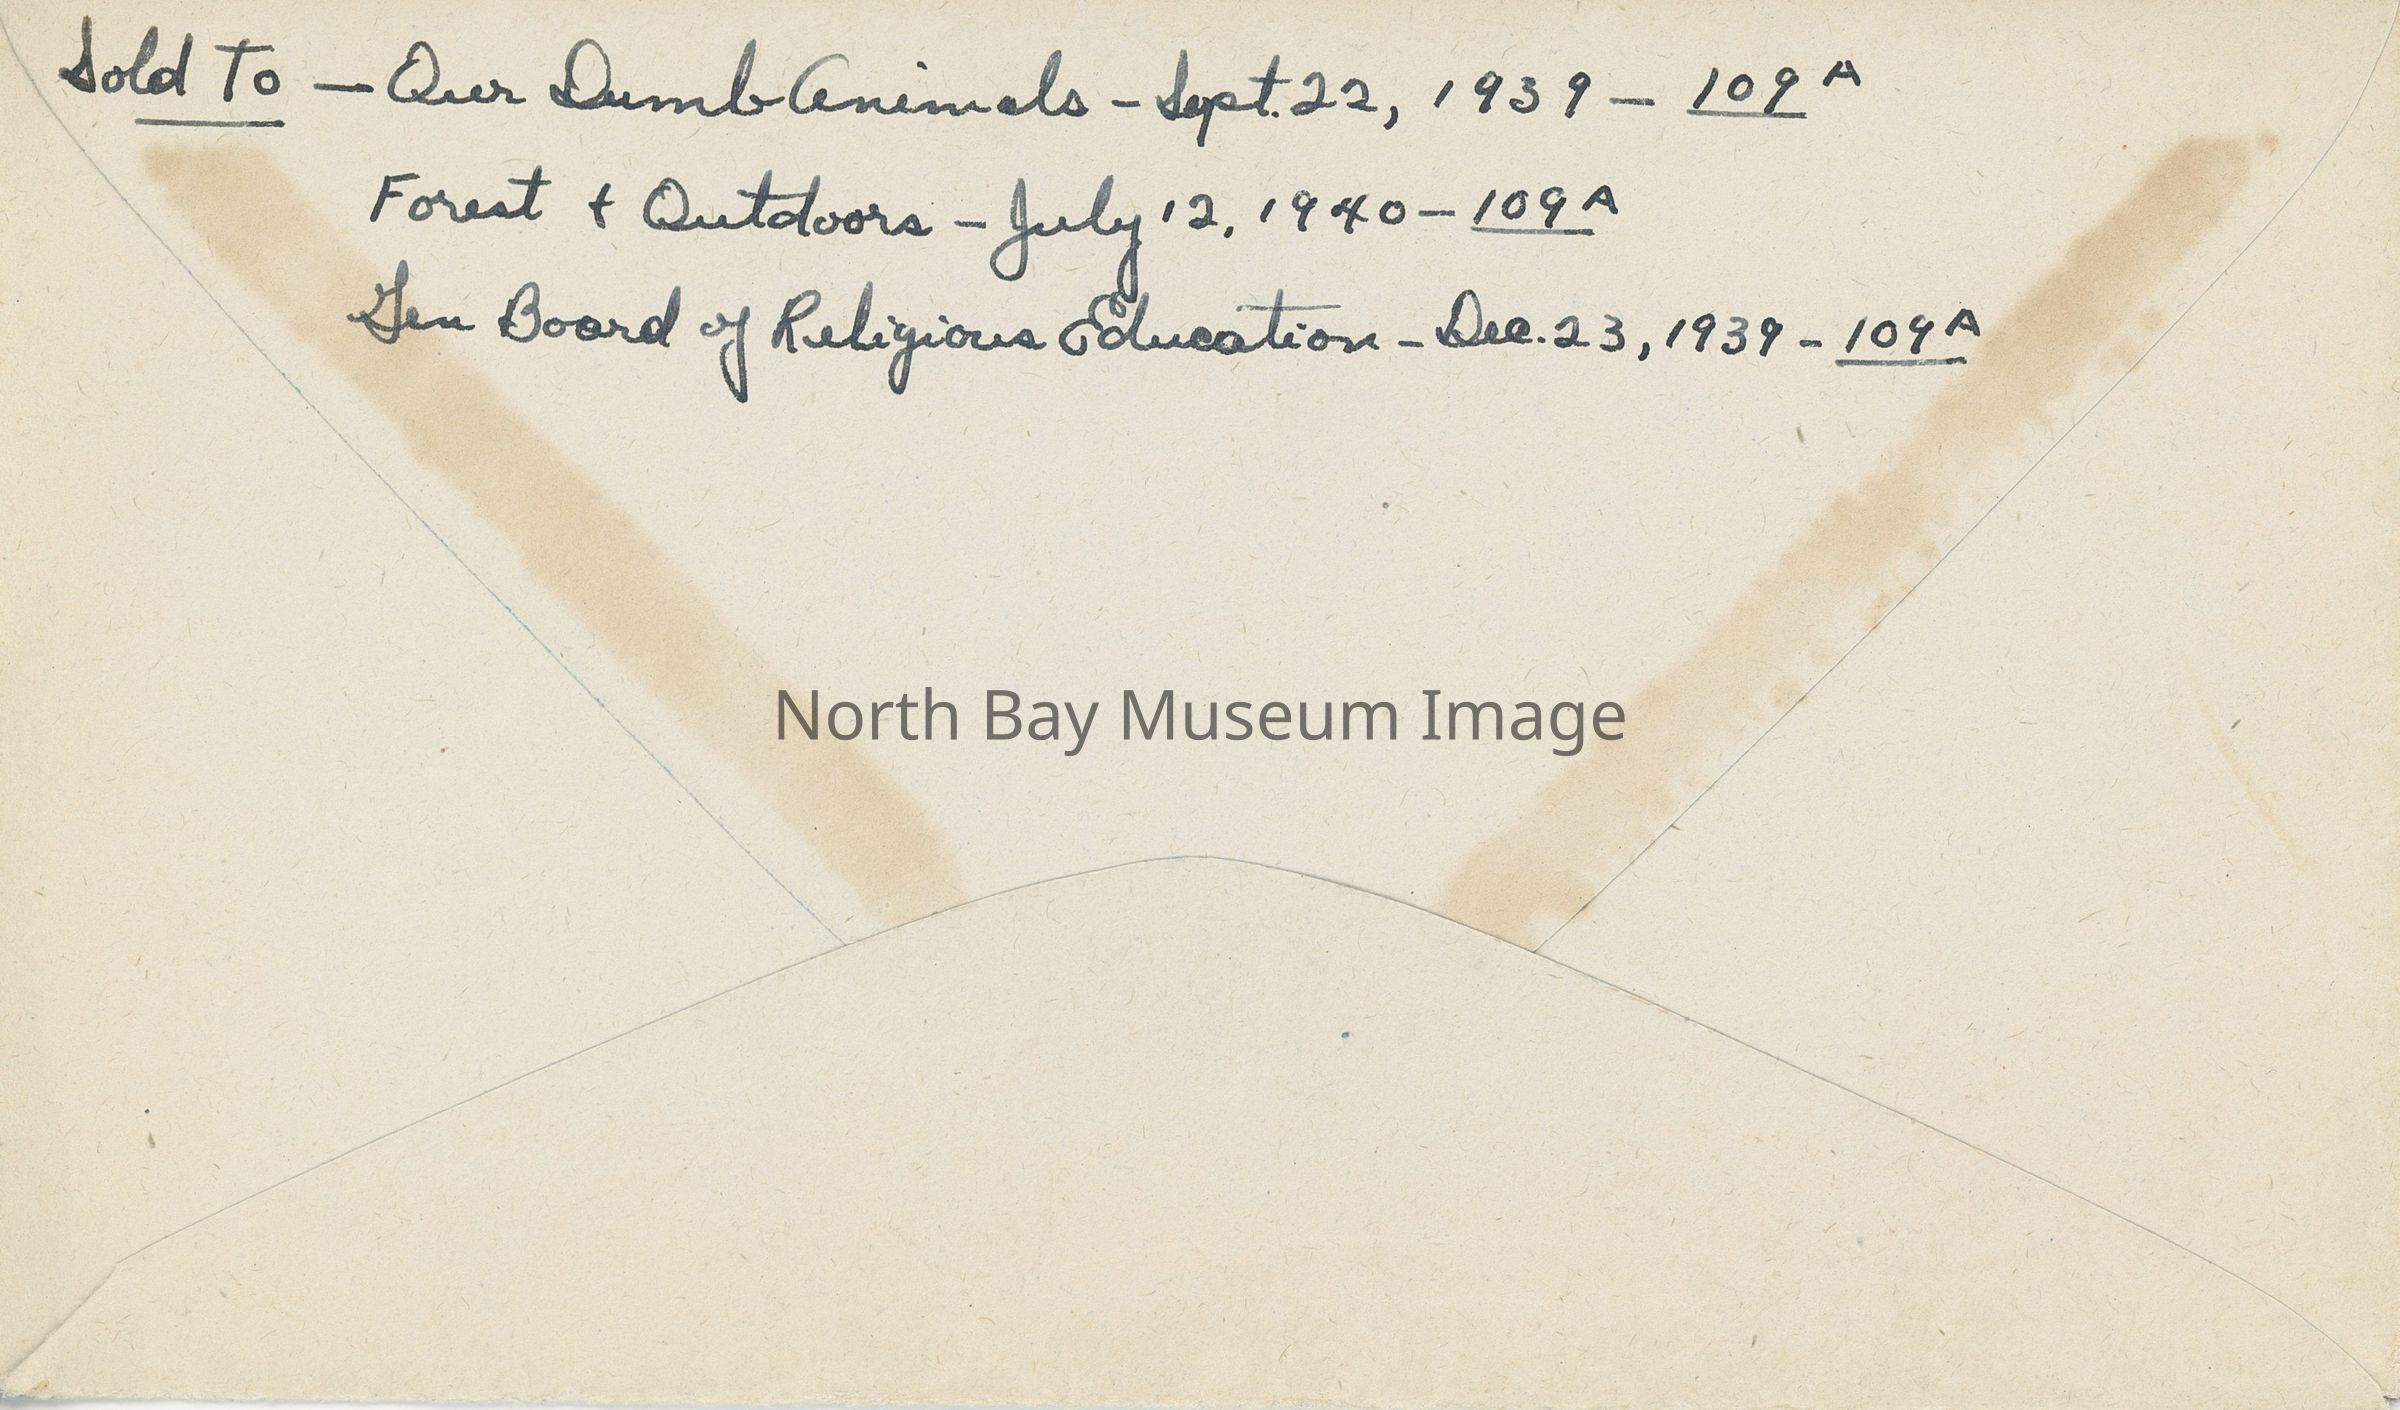 Sold To — Our Dumb Animals - Sept. 22, 1939 — 109 A
Forest + Outdoors - July 12, 1940 - 109 A
Gen Board of Religious Education - Dec. 23, 1939 - 109 A
North Bay Museum Image